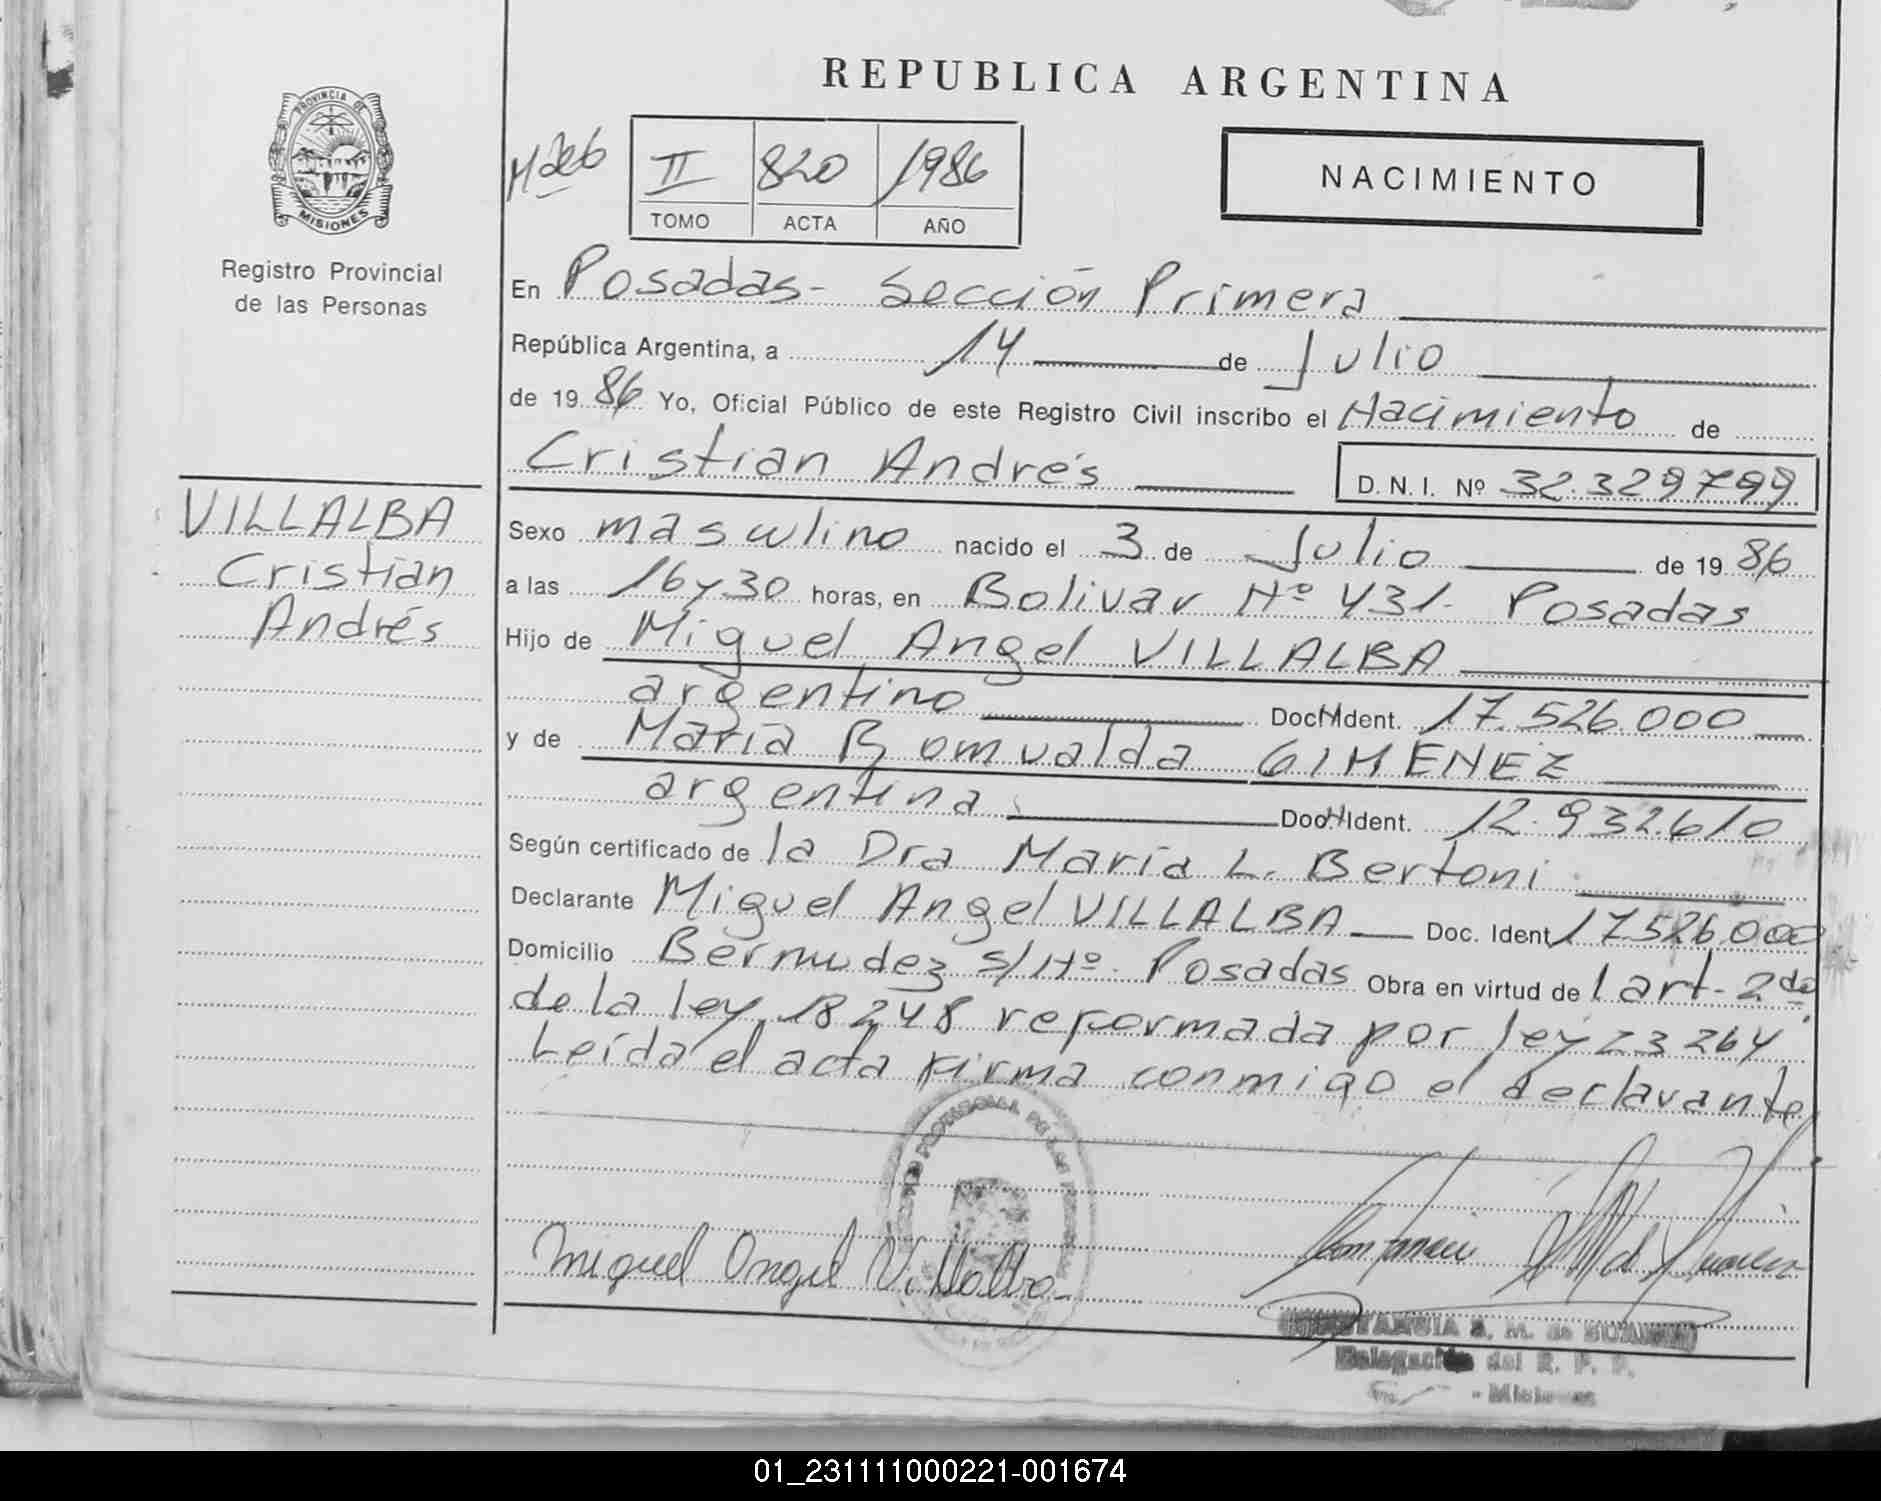 REPUBLICA ARGENTINA
PROVINCIA DE
MISIONES
Registro Provincial
de las Personas
II 820 1986
TOMO ACTA AÑO
NACIMIENTO
En Posadas - Sección Primera
República Argentina, a 14 de Julio
de 1986 Yo, Oficial Público de este Registro Civil inscribo el Nacimiento de
Cristian Andrés D. N. I. Nº 32.329799
VILLALBA
Cristian
Andrés
Sexo masculino nacido el 3 de Julio de 1986
a las 16 y 30 horas, en Bolivar Nº 431 - Posadas
Hijo de Miguel Angel VILLALBA
argentino Doc. Ident. 17.526.000
y de María Romualda GIMENEZ
argentina Doc. Ident. 12.932.610
Según certificado de la Dra María L. Bertoni
Declarante Miguel Angel VILLALBA Doc. Ident. 17526.000
Domicilio Bermudez s/Nº Posadas Obra en virtud del art. 2do
de la ley 18248 reformada por ley 23264
Leída el acta firma conmigo el declarante
Miguel Angel Villalba
Delegación del R. P. P.
- Misiones
01_231111000221-001674